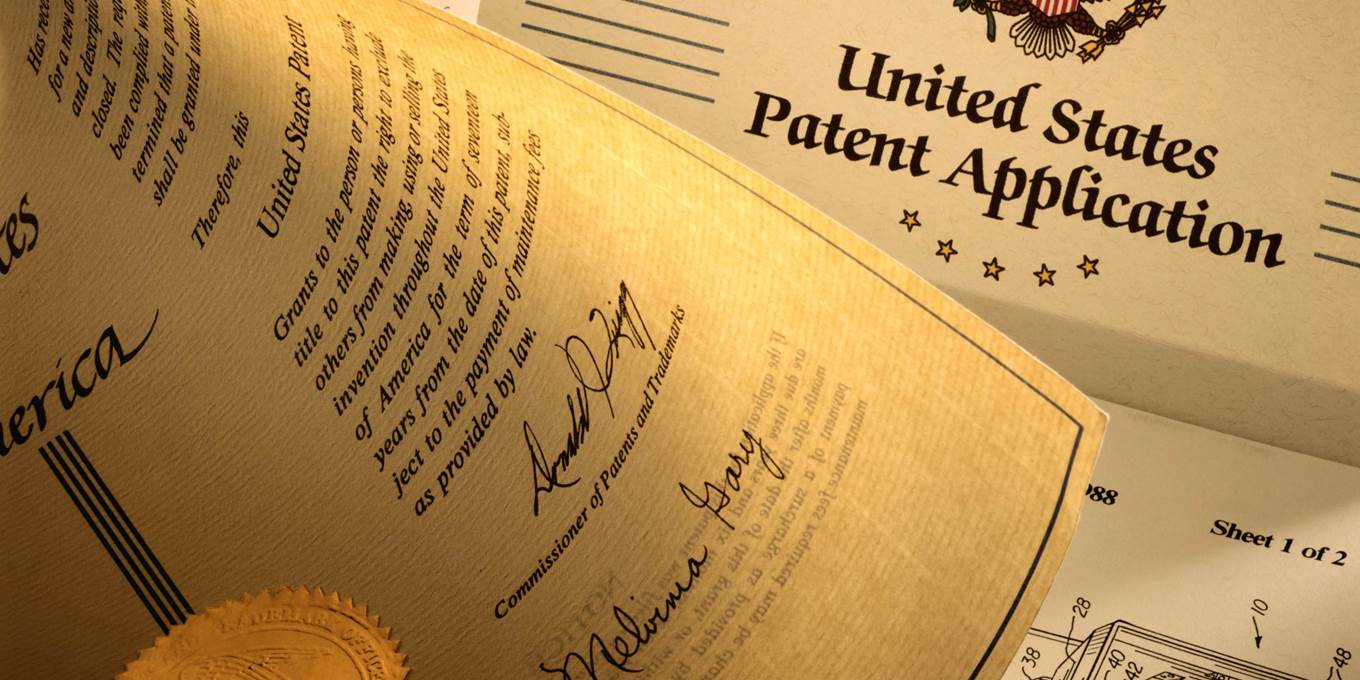 Has rece
for a new
and descrip
closed. The req
been complied wi
termined that a pate
shall be granted under
Therefore, this
United States Patent
Grants to the person or persons having
title to this patent the right to exclude
others from making, using or selling the
invention throughout the United States
of America for the term of seventeen
years from the date of this patent, sub-
ject to the payment of maintenance fees
as provided by law.
Commissioner of Patents and Trademarks
Melvinia Gary
tes
erica
United States
Patent Application
88
Sheet 1 of 2
28
10
38
40
42
48
If the applicat
are due three years and
months after the date of this grant, or
payment of a surcharge as provided by
maintenance fees required may be cha